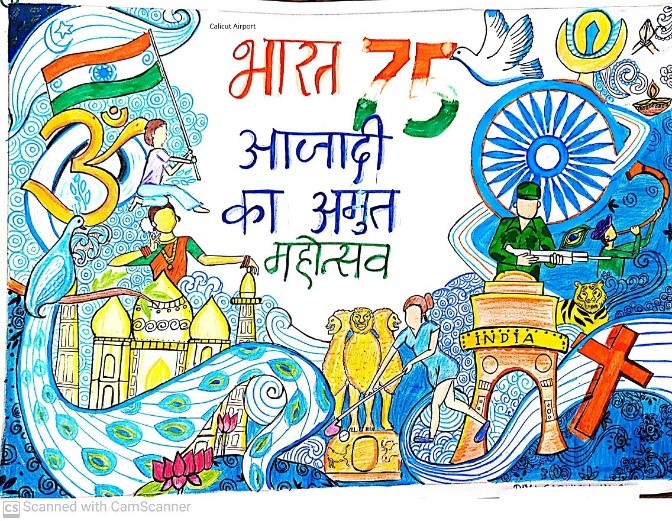 Calicut Airport
भारत 75
आजादी
का अमृत
महोत्सव
INDIA
CS Scanned with CamScanner